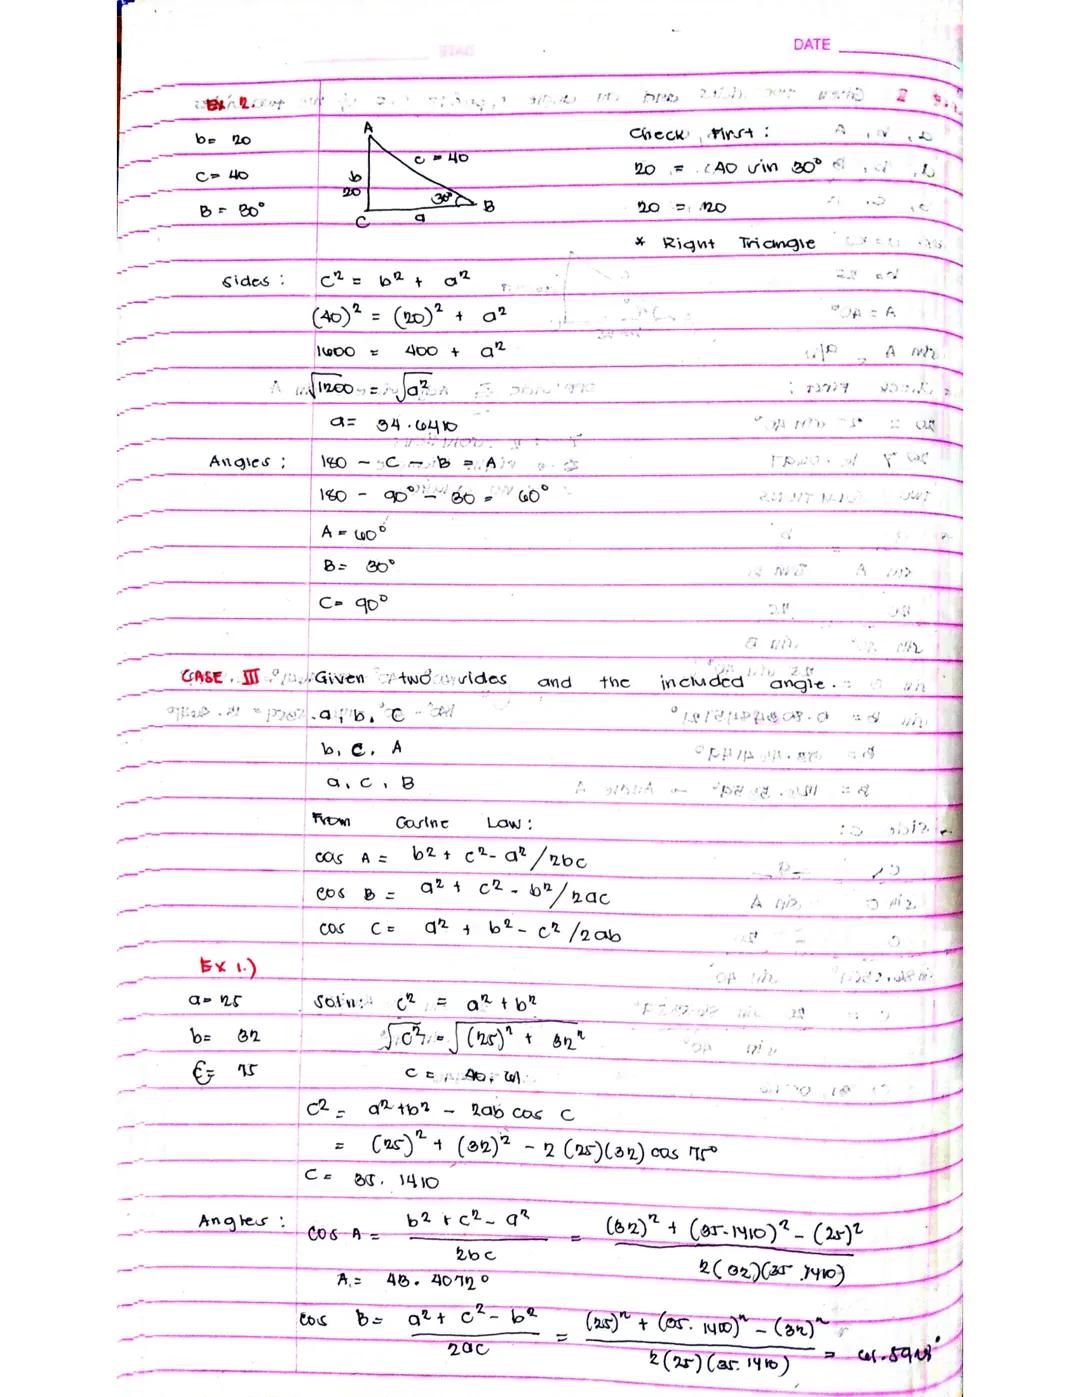 DATE
Ex 2.
b= 20
c= 40
B = 30°
A
c = 40
b
20
30°
B
C
a
Check First :
20 = 40 sin 30°
20 = 20
* Right Triangle
sides : c² = b² + a²
(40)² = (20)² + a²
1600 = 400 + a²
√1200 = √a²
a= 34.6410
Angles : 180 - C - B = A
180 - 90° - 30 = 60°
A = 60°
B= 30°
C= 90°
CASE III Given two sides and the included angle.
a, b, C
b, c, A
a, c, B
From Cosine Law :
cos A = b² + c² - a² /2bc
cos B = a² + c² - b² /2ac
cos C = a² + b² - c² /2ab
Ex 1.)
a= 25
b= 32
C= 75
Sol'n: c² = a² + b²
√c² = √(25)² + 32²
c = 40.61
c² = a² + b² - 2ab cos C
= (25)² + (32)² - 2 (25)(32) cos 75°
c = 35.1410
Angles : cos A = b² + c² - a² / 2bc = (32)² + (35.1410)² - (25)² / 2(32)(35.1410)
A = 43.4072°
cos B = a² + c² - b² / 2ac = (25)² + (35.1410)² - (32)² / 2(25)(35.1410) =